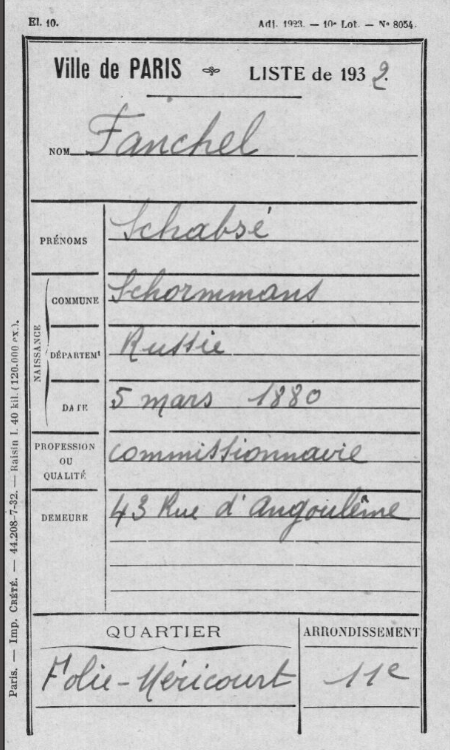 El. 10.
Adj. 1923. — 10e Lot. — No 8054.
Ville de PARIS
LISTE de 1932.
NOM Fanchel
PRÉNOMS Schabsé
NAISSANCE
COMMUNE Schormmans
DÉPARTEMt Russie
DATE 5 mars 1880
PROFESSION
OU
QUALITÉ
commissionnavie
DEMEURE 43 Rue d'Angoulême
QUARTIER
ARRONDISSEMENT
Folie-Méricourt
11e
Paris. — Imp. CRÉTÉ. — 44.208-7-32. — Raisin I. 40 kil. (120.000 ex.).